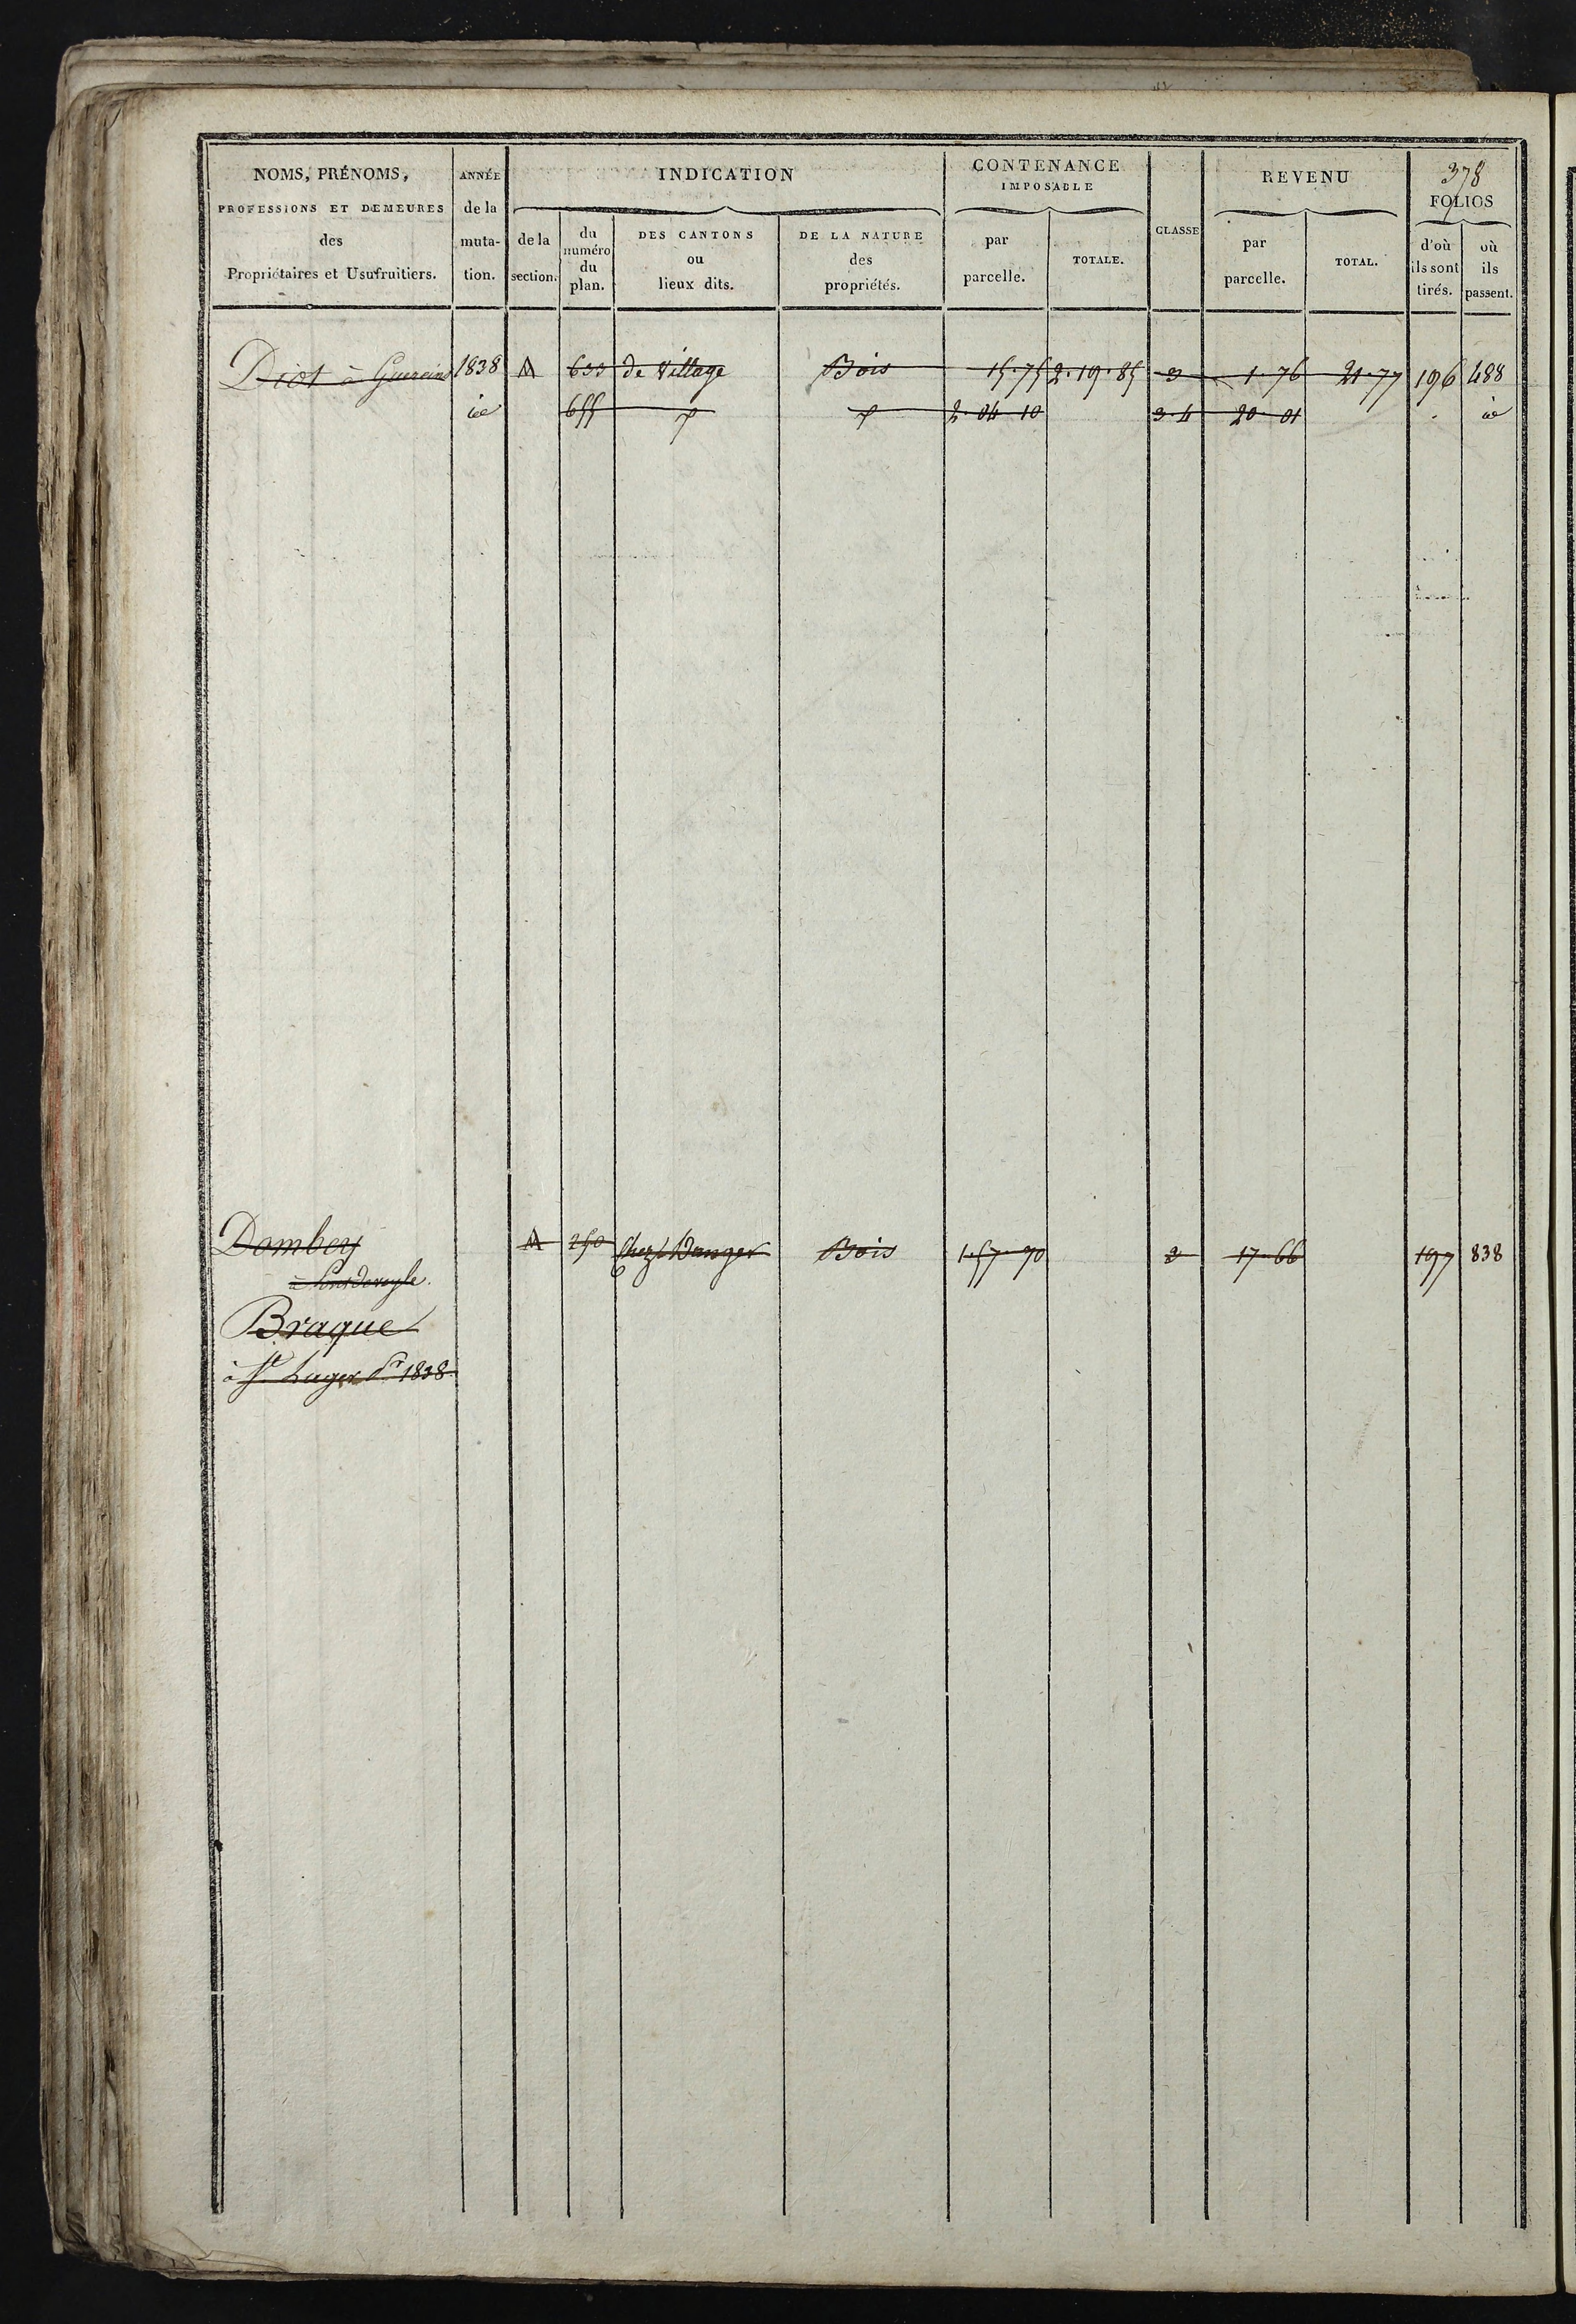 378
NOMS, PRÉNOMS, ANNÉE INDICATION CONTENANCE REVENU
IMPOSABLE FOLIOS
PROFESSIONS ET DEMEURES de la
des muta- de la du numéro du plan. DES CANTONS ou lieux dits. DE LA NATURE des propriétés. par parcelle. TOTALE. CLASSE par parcelle. TOTAL. d'où ils sont tirés. où ils passent.
Propriétaires et Usufruitiers. tion. section.
Diot à Guereins 1838 M 633 de Village Bois 15.75 2.19.85 3 1.76 21.77 196 488
id 655 2.04 10 3.4 20 01 id
Dombey M 250 Chez Bois 1.57.70 2 17.66 197 838
à Pondeveyle
Braque
à St Lager Pr 1838